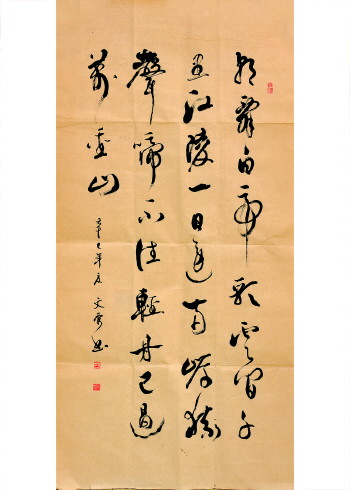 朝辭白帝彩雲間千
里江陵一日還兩岸猿
聲啼不住輕舟已過
萬重山
辛巳年夏文